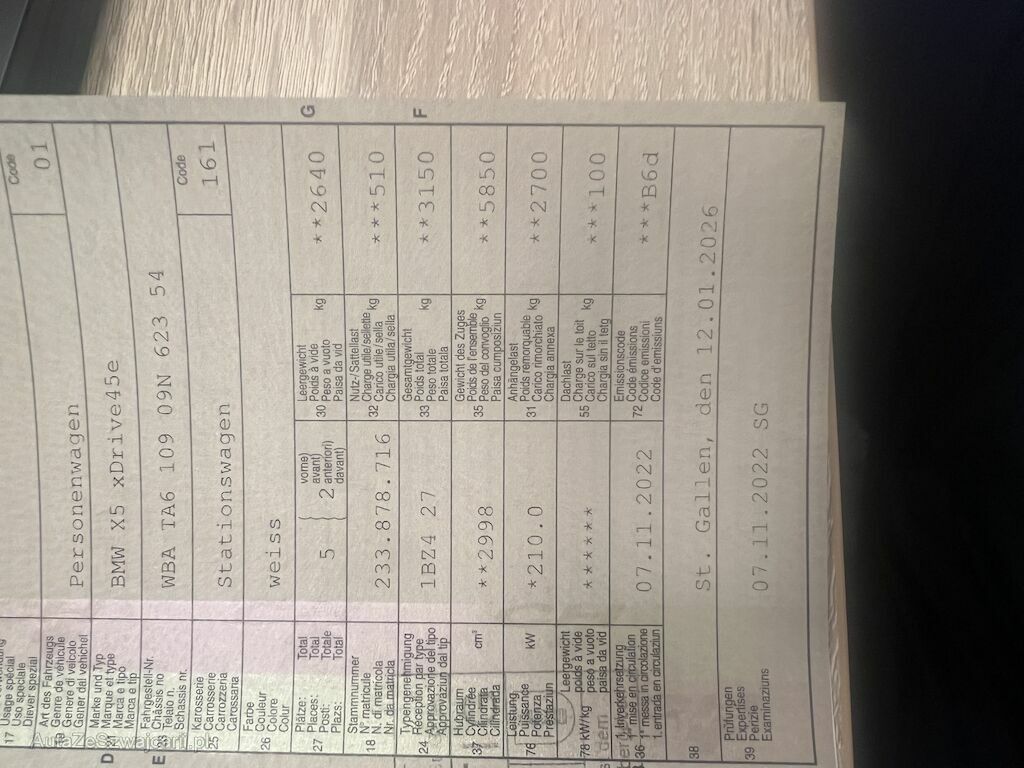 17 Usage spécial
Uso speciale
Diever spezial
Code
01
Art des Fahrzeugs
19 Genre de véhicule
Genere di veicolo
Gener dal vehichel
Personenwagen
D
Marke und Typ
21 Marque et type
Marca e tipo
Marca e tip
BMW X5 xDrive45e
E
Fahrgestell-Nr.
23 Châssis no
Telaio n.
Schassis nr.
WBA TA6 109 09N 623 54
Karosserie
25 Carrosserie
Carrozzeria
Carossaria
Stationswagen
Code
161
Farbe
26 Couleur
Colore
Colur
weiss
Plätze: Total
27 Places: Total
Posti: Totale
Plazs: Total
5
2
vorne)
avant)
anteriori)
davant)
Leergewicht
30 Poids à vide
Peso a vuoto kg
Paisa da vid
**2640
G
Stammnummer
18 N° matricule
N. di matricola
Nr. da matricla
233.878.716
Nutz-/Sattellast
32 Charge utile/sellette kg
Carico utile/sella
Chargia utila/sella
***510
Typengenehmigung
24 Réception par type
Approvazione del tipo
Approvaziun dal tip
1BZ4 27
Gesamtgewicht
33 Poids total kg
Peso totale
Paisa totala
**3150
F
Hubraum
37 Cylindrée cm³
Cilindrata
Cilindrada
**2998
Gewicht des Zuges
35 Poids de l'ensemble kg
Peso del convoglio
Paisa cumposiziun
**5850
Leistung
76 Puissance kW
Potenza
Prestaziun
*210.0
Anhängelast
31 Poids remorquable kg
Carico rimorchiato
Chargia annexa
**2700
Leergewicht
78 kW/kg poids à vide
peso a vuoto
paisa da vid
******
Dachlast
55 Charge sur le toit kg
Carico sul tetto
Chargia sin il tetg
***100
1. Inverkehrsetzung
36 1re mise en circulation
1a messa in circolazione
1. entrada in circulaziun
07.11.2022
Emissionscode
72 Code émissions
Codice emissioni
Code d'emissiuns
***B6d
38
St. Gallen, den 12.01.2026
Prüfungen
39 Expertises
Perizie
Examinaziuns
07.11.2022 SG